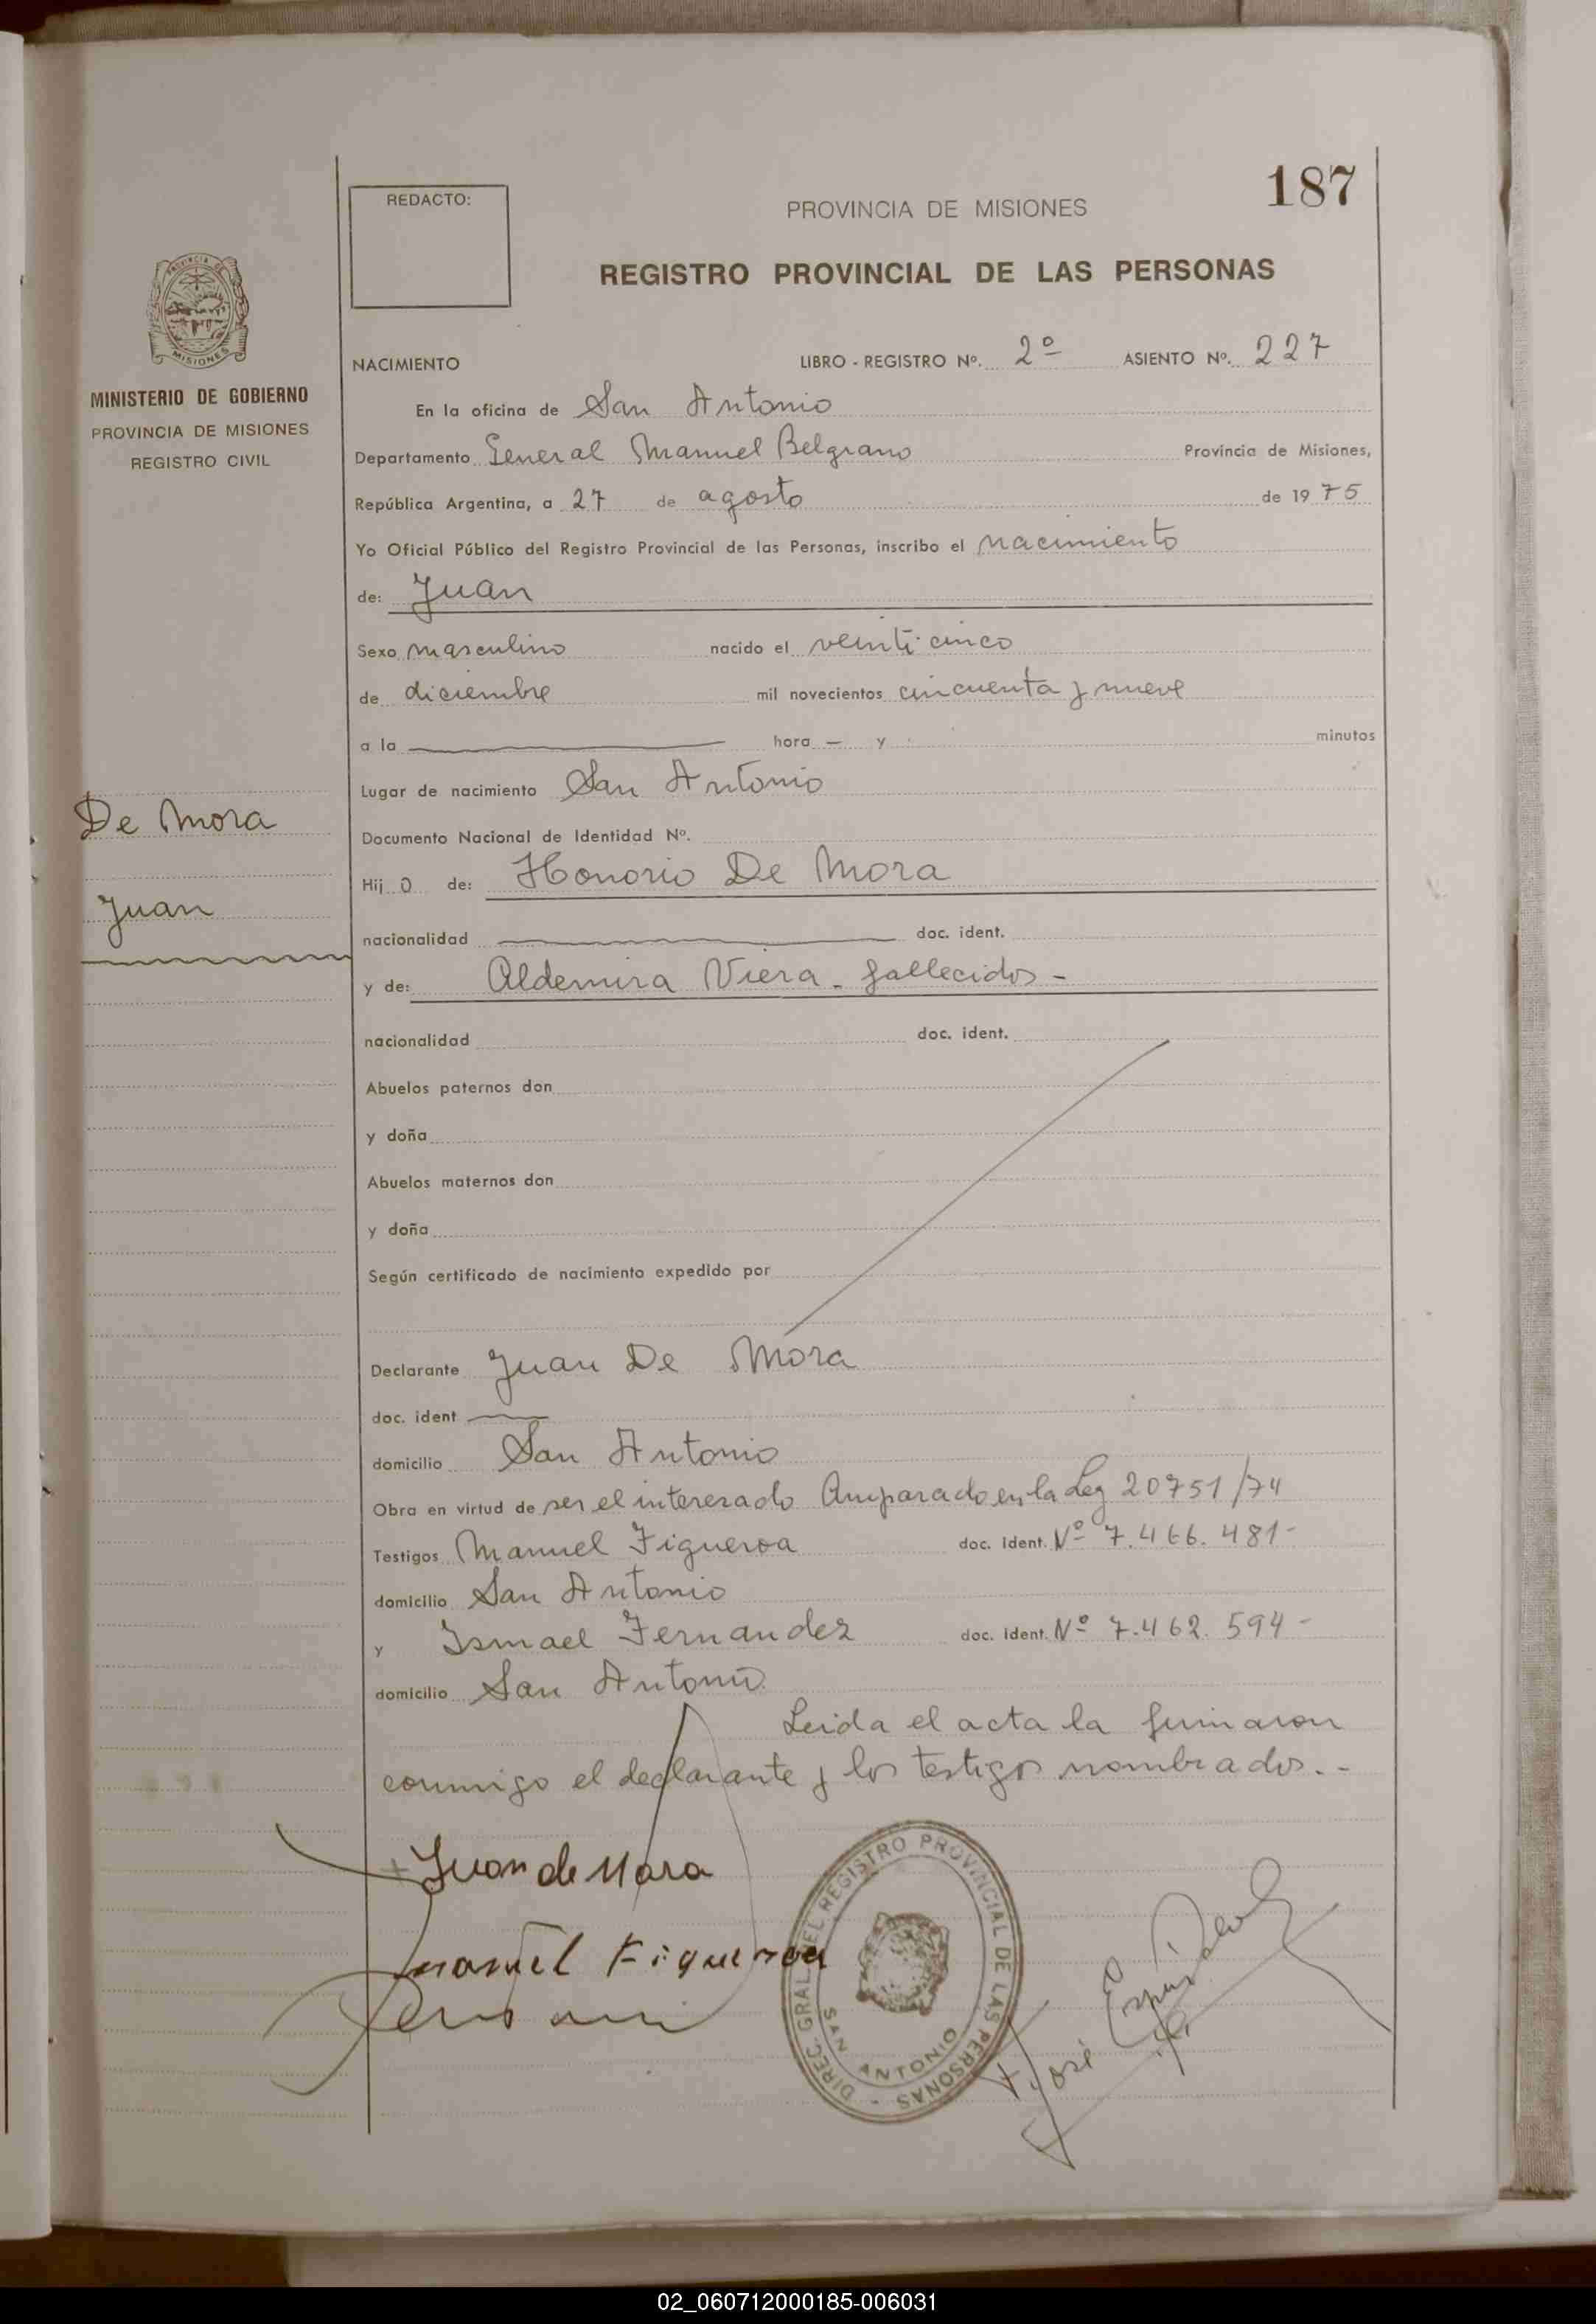 187
REDACTO:
PROVINCIA DE MISIONES
REGISTRO PROVINCIAL DE LAS PERSONAS
PROVINCIA DE
MISIONES
MINISTERIO DE GOBIERNO
PROVINCIA DE MISIONES
REGISTRO CIVIL
NACIMIENTO LIBRO - REGISTRO Nº. 2º ASIENTO Nº. 227
En la oficina de San Antonio
Departamento General Manuel Belgrano Provincia de Misiones,
República Argentina, a 27 de agosto de 1975
Yo Oficial Público del Registro Provincial de las Personas, inscribo el nacimiento
de: Juan
Sexo masculino nacido el veinti cinco
de diciembre mil novecientos cincuenta y nueve
a la hora — y minutos
Lugar de nacimiento San Antonio
De Mora
Documento Nacional de Identidad Nº.
Hij o de: Honorio De Mora
Juan
nacionalidad doc. ident.
y de: Aldemira Viera - fallecidos -
nacionalidad doc. ident.
Abuelos paternos don
y doña
Abuelos maternos don
y doña
Según certificado de nacimiento expedido por
Declarante Juan De Mora
doc. ident
domicilio San Antonio
Obra en virtud de ser el interesado Amparado en la Ley 20751/74
Testigos Manuel Figueroa doc. ident. Nº 7.466.481-
domicilio San Antonio
y Ismael Fernandez doc. ident. Nº 7.462.594-
domicilio San Antonio
Leida el acta la firmaron
conmigo el declarante y los testigos nombrados. -
+ Juan de Mora
Manuel Figueroa
DIREC. GRAL. DEL REGISTRO PROVINCIAL DE LAS PERSONAS -
SAN ANTONIO
José
02_060712000185-006031